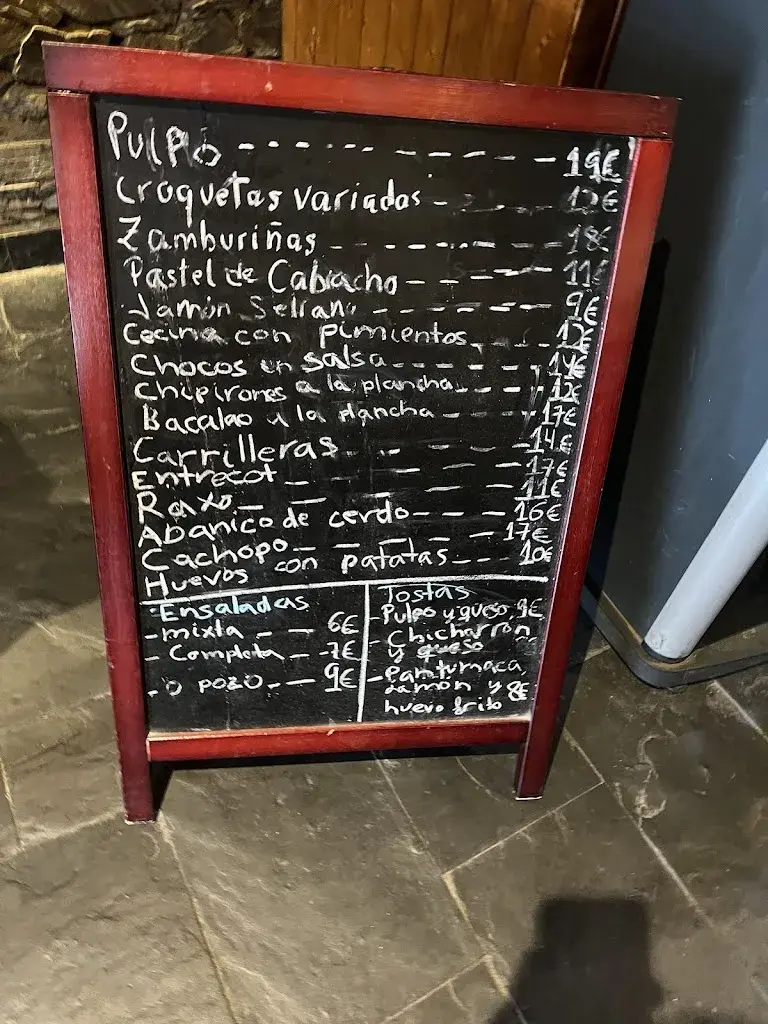 Pulpo - - - - - - - - - 19€
Croquetas variadas - - - - 12€
Zamburiñas - - - - - - 18€
Pastel de Cabracho - - - - - 11€
Jamón Serrano - - - - - - 9€
Cecina con pimientos - - - 12€
Chocos en salsa - - - - - 14€
Chipirones a la plancha - - - - 12€
Bacalao a la plancha - - - - 17€
Carrilleras - - - - - 14€
Entrecot - - - - - 17€
Raxo - - - - - 11€
Abanico de cerdo - - - 16€
Cachopo - - - - - 17€
Huevos con patatas - - - 10€
- Ensaladas
- mixta - - - 6€
- Completa - - 7€
- O pozo - - - 9€
Tostas
- Pulpo y queso, 9€
- Chicharrón
y queso
- Pamtumaca,
Jamón y 8€
huevo frito